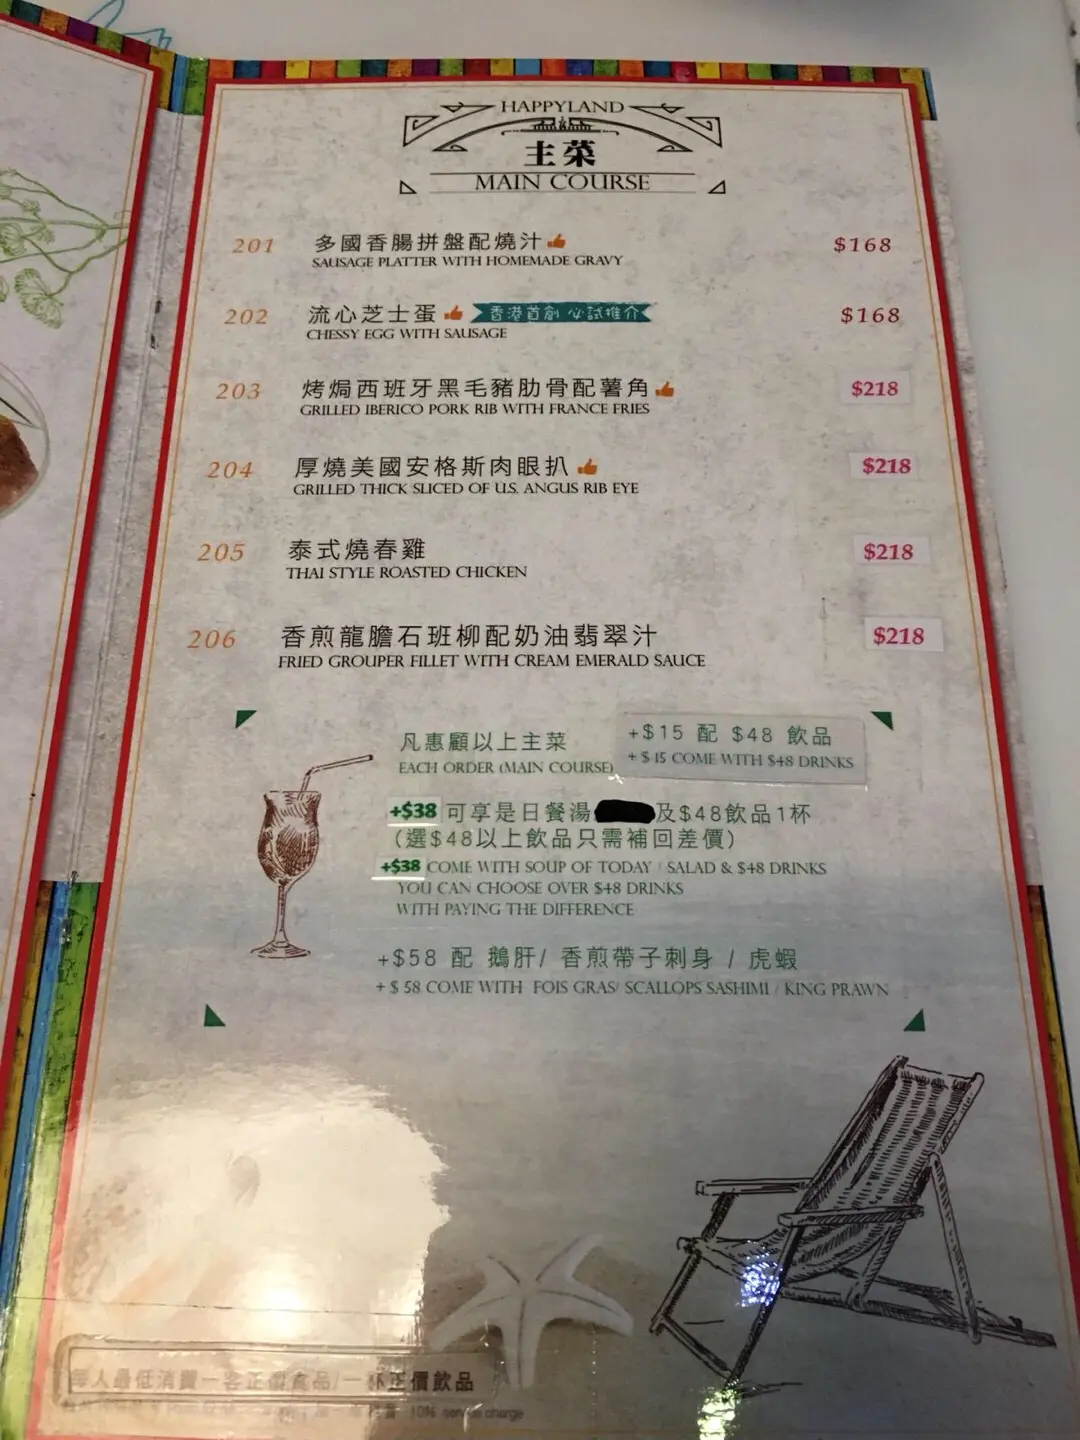 HAPPYLAND
主菜
MAIN COURSE
201 多國香腸拼盤配燒汁 $168
SAUSAGE PLATTER WITH HOMEMADE GRAVY
202 流心芝士蛋 香港首創 必試推介 $168
CHESSY EGG WITH SAUSAGE
203 烤焗西班牙黑毛豬肋骨配薯角 $218
GRILLED IBERICO PORK RIB WITH FRANCE FRIES
204 厚燒美國安格斯肉眼扒 $218
GRILLED THICK SLICED OF U.S. ANGUS RIB EYE
205 泰式燒春雞 $218
THAI STYLE ROASTED CHICKEN
206 香煎龍膽石班柳配奶油翡翠汁 $218
FRIED GROUPER FILLET WITH CREAM EMERALD SAUCE
凡惠顧以上主菜 +$15 配 $48 飲品
EACH ORDER (MAIN COURSE) +$15 COME WITH $48 DRINKS
+$38 可享是日餐湯 及$48飲品1杯
(選$48以上飲品只需補回差價)
+$38 COME WITH SOUP OF TODAY / SALAD & $48 DRINKS
YOU CAN CHOOSE OVER $48 DRINKS
WITH PAYING THE DIFFERENCE
+$58 配 鵝肝/ 香煎帶子刺身 / 虎蝦
+$58 COME WITH FOIS GRAS/ SCALLOPS SASHIMI / KING PRAWN
每人最低消費一客正價食品/一杯正價飲品
10% service charge